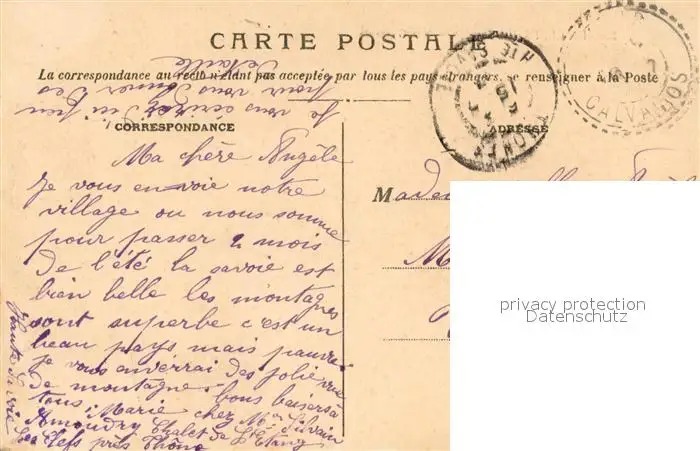 CARTE POSTALE
La correspondance au recto n'étant pas acceptée par tous les pays étrangers, se renseigner à la Poste
CORRESPONDANCE
ADRESSE
Ma chère Angèle
Je vous envoie notre
village ou nous somme
pour passer 2 mois
de l'été la savoie est
bien belle les montagnes
sont superbe c'est un
beau pays mais pauvre
je vous enverrai des jolie vue
de montagne bons baisers à
tous Marie chez Mr Silvain
Amoudry Chalet de l'Etang
Les Clefs près Thône
Haute Savoie
Je vous écrirai un peu
pour vous donner des
détaille
M
HTE SAVOIE
CALVADOS
privacy protection
Datenschutz